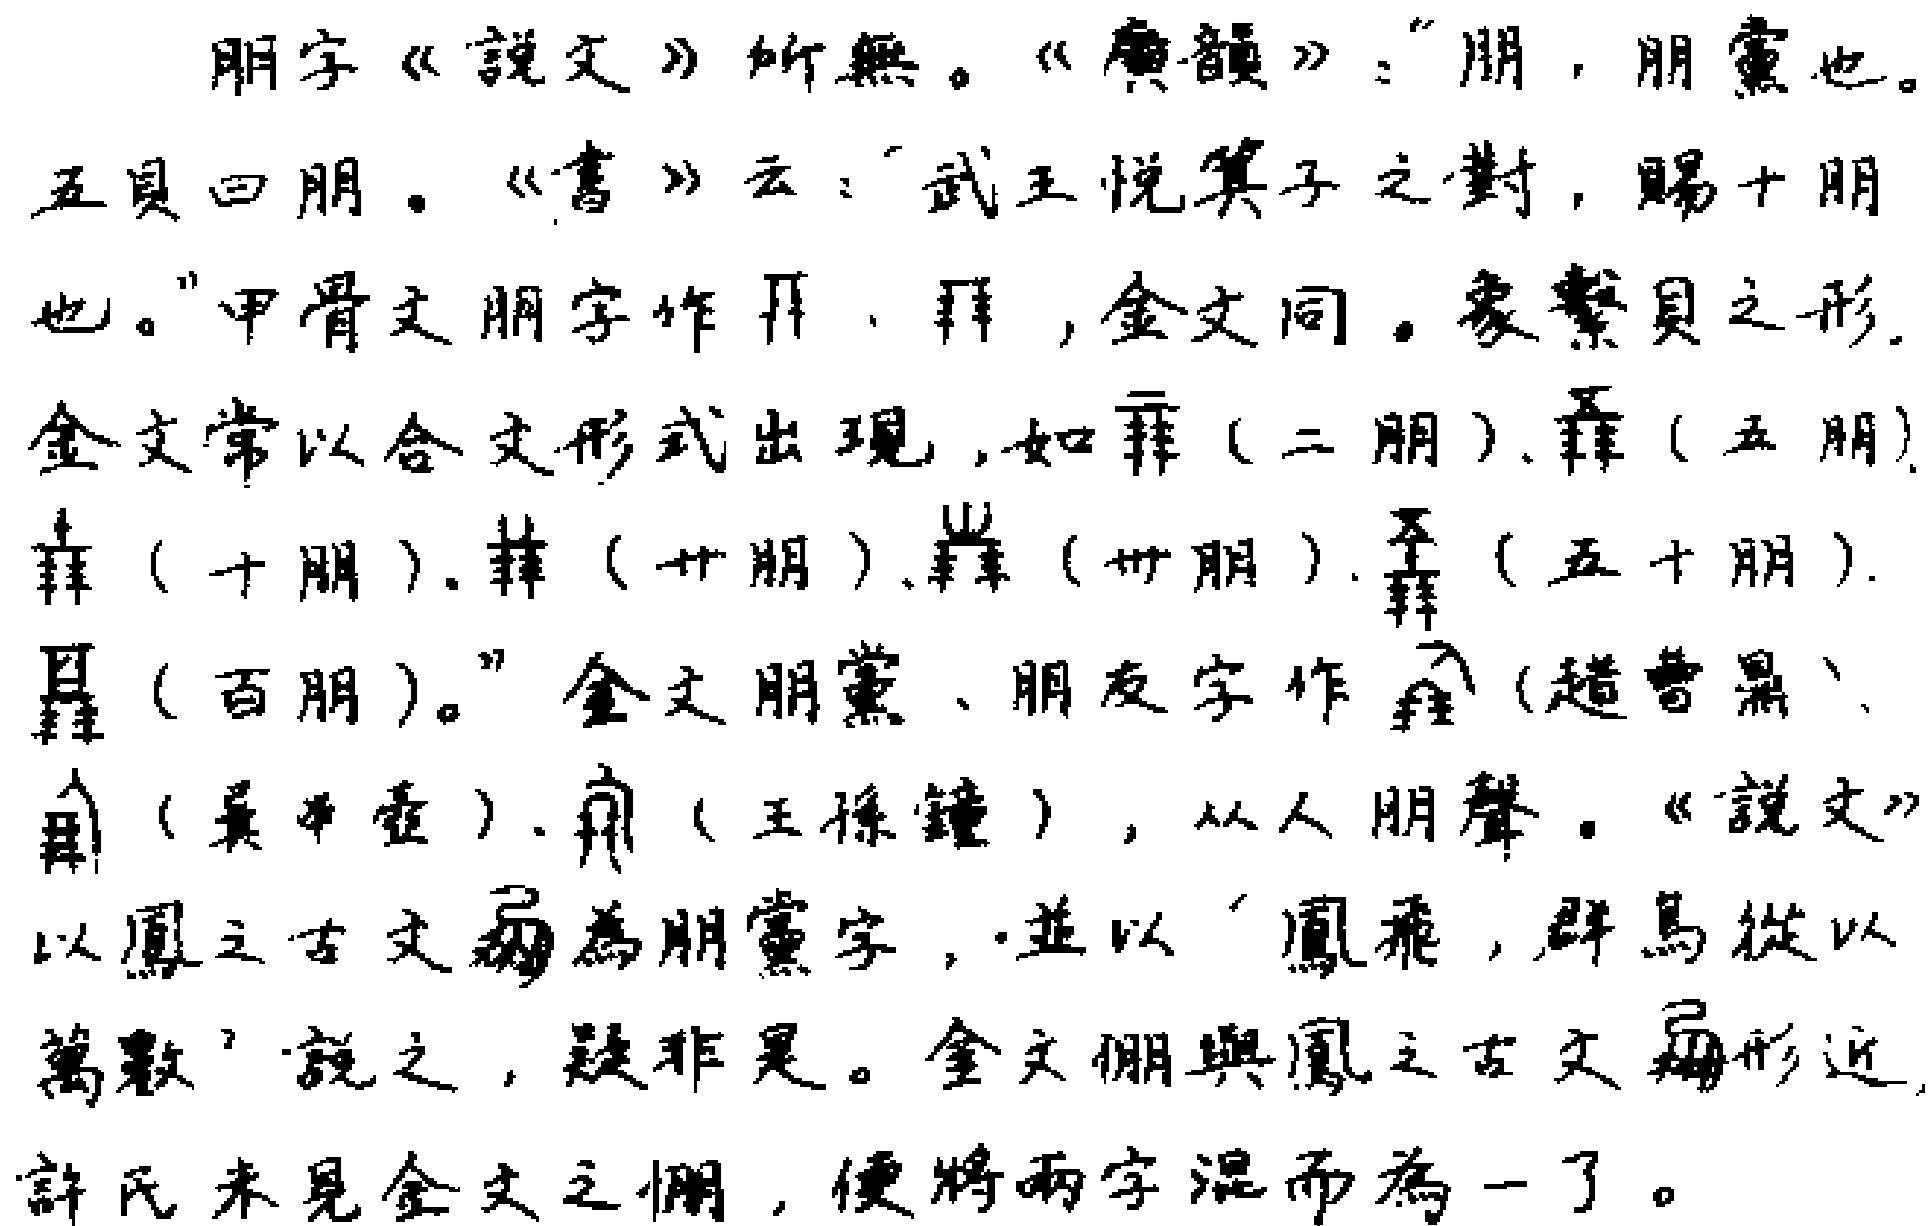 朋字《説文》所無。《廣韻》："朋，朋黨也。
五貝曰朋。《書》云：'武王悦箕子之對，賜十朋
也。"甲骨文朋字作、，金文同。象繫貝之形.
金文常以合文形式出現，如（二朋）、（五朋）、
（十朋）、（廿朋）、（卅朋）、（五十朋）.
（百朋）。"金文朋黨、朋友字作（趞曹鼎、
（壺）、（王孫鐘），从人朋聲。《説文》
以鳳之古文為朋黨字，並以'鳳飛，群鳥從以
萬數'説之，疑非是。金文倗與鳳之古文形近，
許氏未見金文之倗，便將兩字混而為一了。